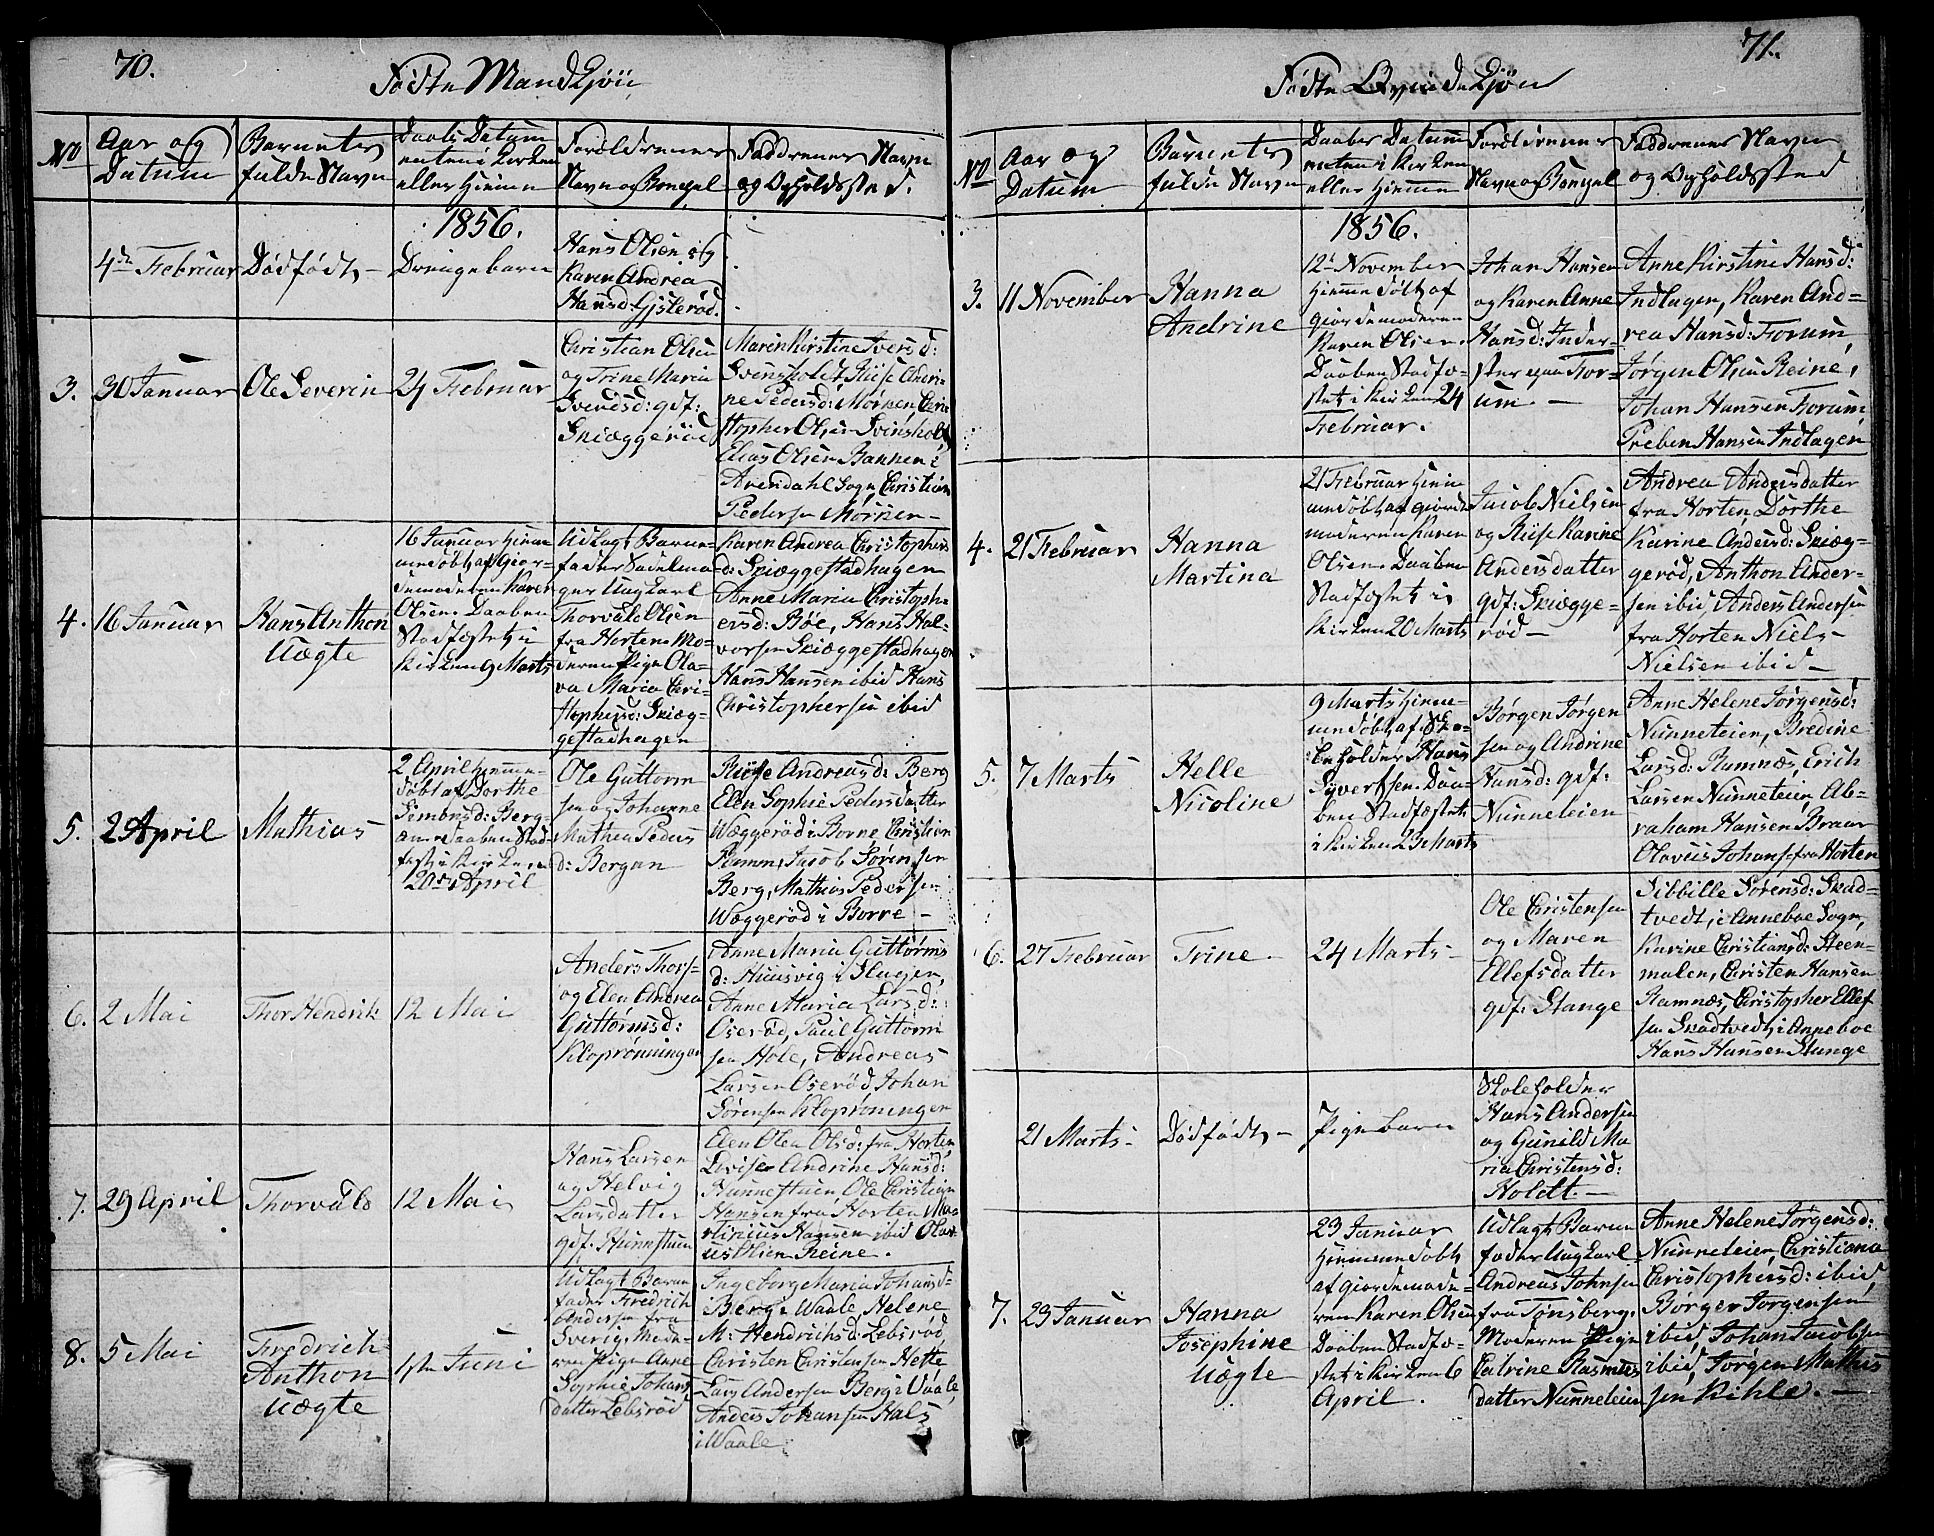 70.
Fødte Mandkjøn
No
Aar og
Datum
Barnets
fulde Navn
Daabs Datum
enten i Kirken
eller Hjemme
Forældrenes
Navn og Bopæl
Faddrenes Navn
og Opholdssted.
1856.
4de Februar
Dødfødt
Drengebarn
Hans Olsen og
Karen Andrea
Hansd: Gjsterød.
3.
30 Januar
Ole Severin
24 Februar
Christian Olsen
og Trine Maria
Svendsd: gdf:
Skiæggerød
Maren Kirstine Iversd:
Svinsholdt, Riise Andri-
ne Pedersd: Mørken, Chri-
stopher Olsen Svinsholt,
Elias Olsen Bannen i
Arendahl Sogn, Christian
Pedersen Mørken
4.
16 Januar
Hans Anthon
Uægte
16 Januar hiem-
medøbt af Gjor-
demoderen Karen
Olsen. Daaben
Stadfæstet i
Kirken 9 Marts
Udlagt Barne-
fader Sadelma-
ger Ungkarl
Thorvald Olsen
fra Horten. Mo-
deren Pige Ola-
va Maria Chri-
stophersd: Skiæg-
gestadhagen
Karen Andrea Christophers
d: Skiæggestadhagen
Anne Maria Christoph-
ersd: Bøe, Hans Hal-
vorsen Skiæggestadhagen
Hans Hansen ibid Hans
Christophersen ibid
5.
2 April
Mathias
2 April hjemme-
døbt af Dorthe
Simonsd: Berg-
an. Daaben Stad-
fæst i Kirken
20de April
Ole Guttorm
sen og Johanne
Mathea Peders
d: Bergan
Riise Andreasd: Berg
Elen Sophie Pedersdatter
Wæggerød i Borre Christian
Ramm, Jacob Sørensen
Berg, Mathias Peder sen
Wæggerød i Borre
6.
2 Mai
Thor Hendrik
12 Mai
Anders Thors-
og Elen Andrea
Guttormsd:
Kloprønningen
Anne Maria Guttorms
d: Huusvig i Slagen,
Anne Maria Larsd:
Oserød, Paul Guttorm
sen Hole, Andreas
Larsen Oserød, Johan
Sørensen Kloprøningen
7.
29 April
Thorvald
12 Mai
Hans Larsen
og Helvig
Larsdatter
gdf. Hunnstuen
Elen Olea Olsd: fra Horten,
Lovise Andrine Hansd:
Hunnestuen, Ole Christian
Hansen fra Horten Ma-
rtinius Hansen ibid Olav
us Thien Reine.
8.
5 Mai
Fredrich
Anthon
Uægte
1ste Juni
Udlagt Barne
fader Fredrich
Andersen fra
Sverig. Mode-
ren Pige Anne
Sophie Johans
datter Lebsrød
Ingeborg Maria Johansd-
Berg i Waale, Helene
M: Hendrichsd: Lebsrød,
Christen Christensen Hette
Lars Andersen Berg i Vaale,
Anders Johansen Hals
i Waale
71.
Fødte Qvindekjøn
No
Aar og
Datum
Barnets
fulde Navn
Daabs Datum
enten i Kirken
eller Hiemme
Forældrenes
Navn og Bopæl
Faddrenes Navn
og Opholdssted
1856.
3.
11 November
Hanna
Andrine
12te November
hiemme døbt af
giordemoderen
Karen Olsen.
Daaben Stadfæ-
stet i Kirken 24
Februar.
Johan Hansen
og Karen Anne
Hansd: Inder-
ster paa For-
um
Anne Kirstine Hansd:
Indlagen, Karen And-
rea Hansd: Forum,
Jørgen Olsen Reine,
Johan Hansen Forum
Preben Hansen Indlagen
4.
21 Februar
Hanna
Martina
21 Februar hiem
medøbt af giorde
moderen Karen
Olsen. Daaben
Stadfæstet i
Kirken 20 Marts
Jacob Nielsen
og Riise Karine
Andersdatter
gdf: Skiægge-
rød
Andrea Andersdatter
fra Horten Dorthe
Karine Andersd: Skiæg-
gerød, Anthon Ander-
sen ibid, Anders Andersen
fra Horten Niels
Nielsen ibid
5.
7 Marts
Helle
Nicoline
9 Marts hiem-
medøbt af Sko-
leholder Hans
Syvertsen. Daa-
ben Stadfæstet
i Kirken 23 Marts
Børgen Jørgen
sen og Andrine
Hansd: gdf:
Nunneteien
Anne Helene Jørgensd:
Nunneteien, Bredine
Larsd: Ramnæs, Erich
Larsen Nunneteien Ab-
raham Hansen Braar
Olavus Johans: fra Horten
6.
27 Februar
Trine
24 Marts
Ole Christensen
og Maren
Ellefsdatter
gdf: Stange
Sibbille Sørensd: Skad-
tvedt, i Anneboe Sogn,
Karine Christiansd: Steen-
malen, Christen Hansen
Ramnæs, Christopher Ellef
sen Skadtvedt i Anneboe
Hans Hansen Stange
21 Marts
Dødfødt
Pigebarn
Skoleholder
Hans Andersen
og Gunild Ma
ria Christensd:
Holdt.
7.
23 Januar
Hanna
Josephine
Uægte
23 Januar
hiemmedøbt
af giordemode-
ren Karen Olsen
Daaben Stadfæ-
stet i Kirken 6
April.
Udlagt Barne
fader Ungkarl
Andreas Johnsen
fra Tønsberg.
Moderen Pige
Catrine Rasmus
datter Nunneteien
Anne Helene Jørgensd:
Nunneteien, Christiana
Christophersd: ibid
Børger Jorgensen
ibid, Johan Jacobsen
ibid, Jørgen Mathis
sen Kihle.